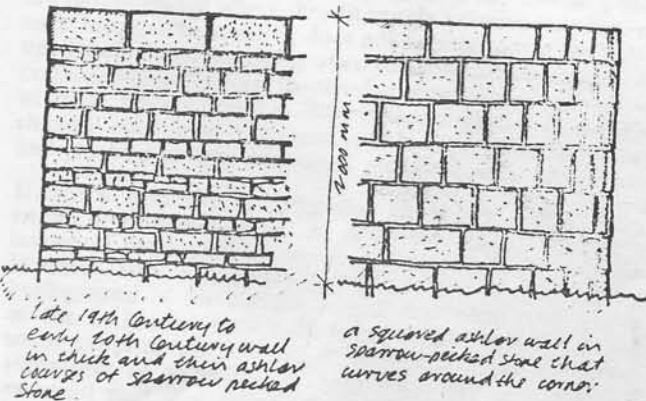 2000 mm
late 19th Century to
early 20th Century wall
in thick and thin ashlar
courses of sparrow pecked
stone.
a squared ashlar wall in
sparrow-pecked stone that
curves around the corner.